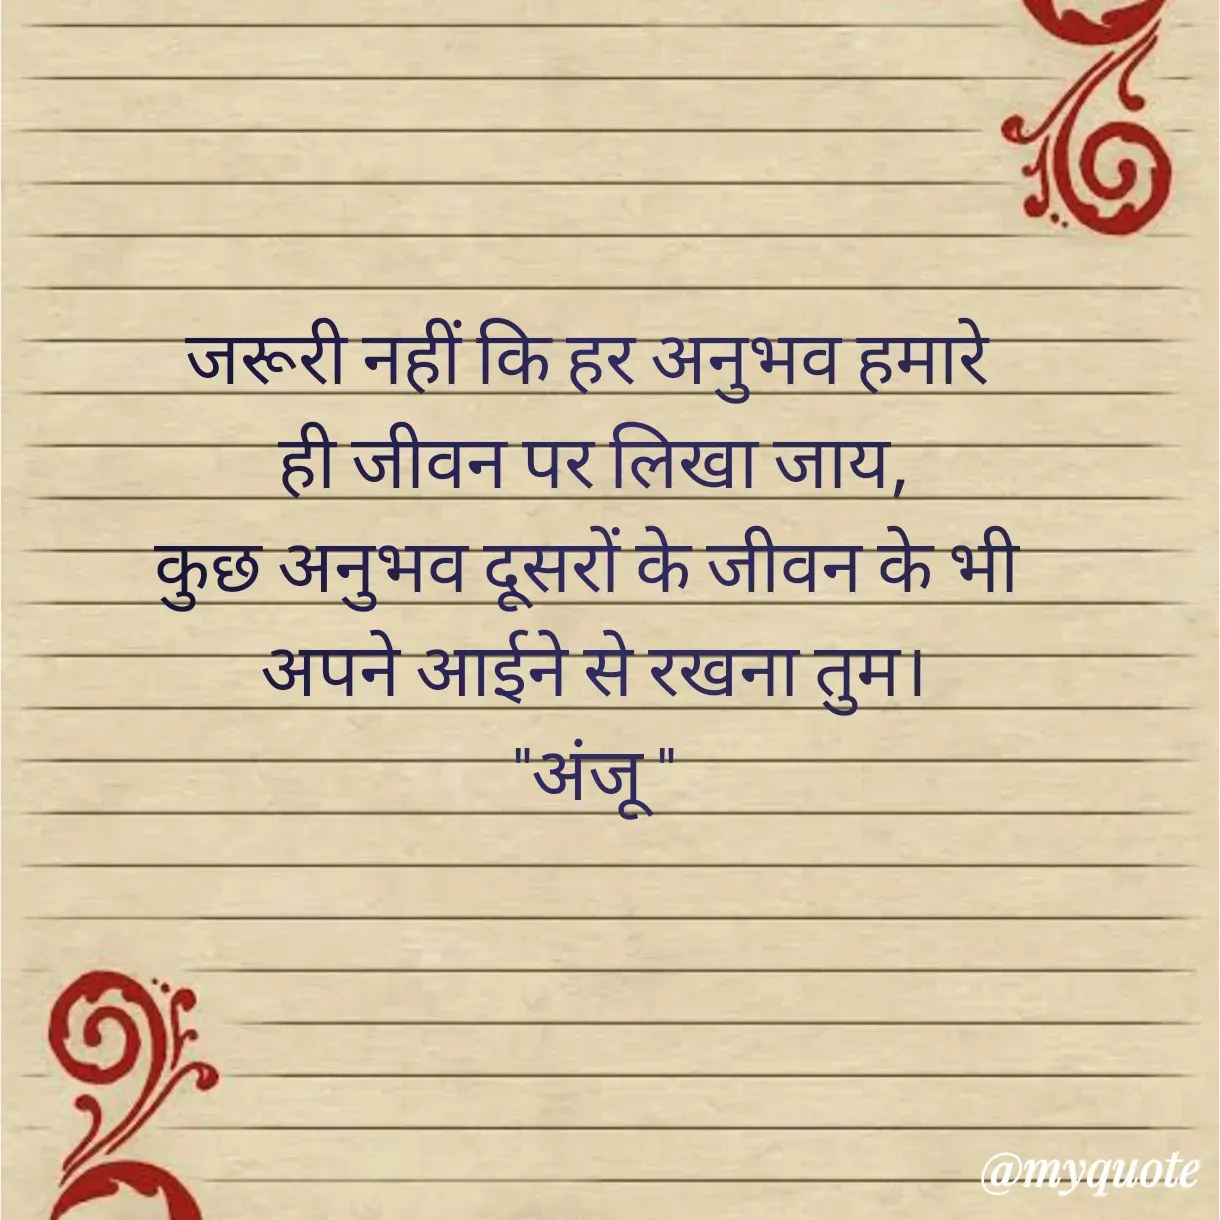 जरूरी नहीं कि हर अनुभव हमारे
ही जीवन पर लिखा जाय,
कुछ अनुभव दूसरों के जीवन के भी
अपने आईने से रखना तुम।
"अंजू "
@myquote